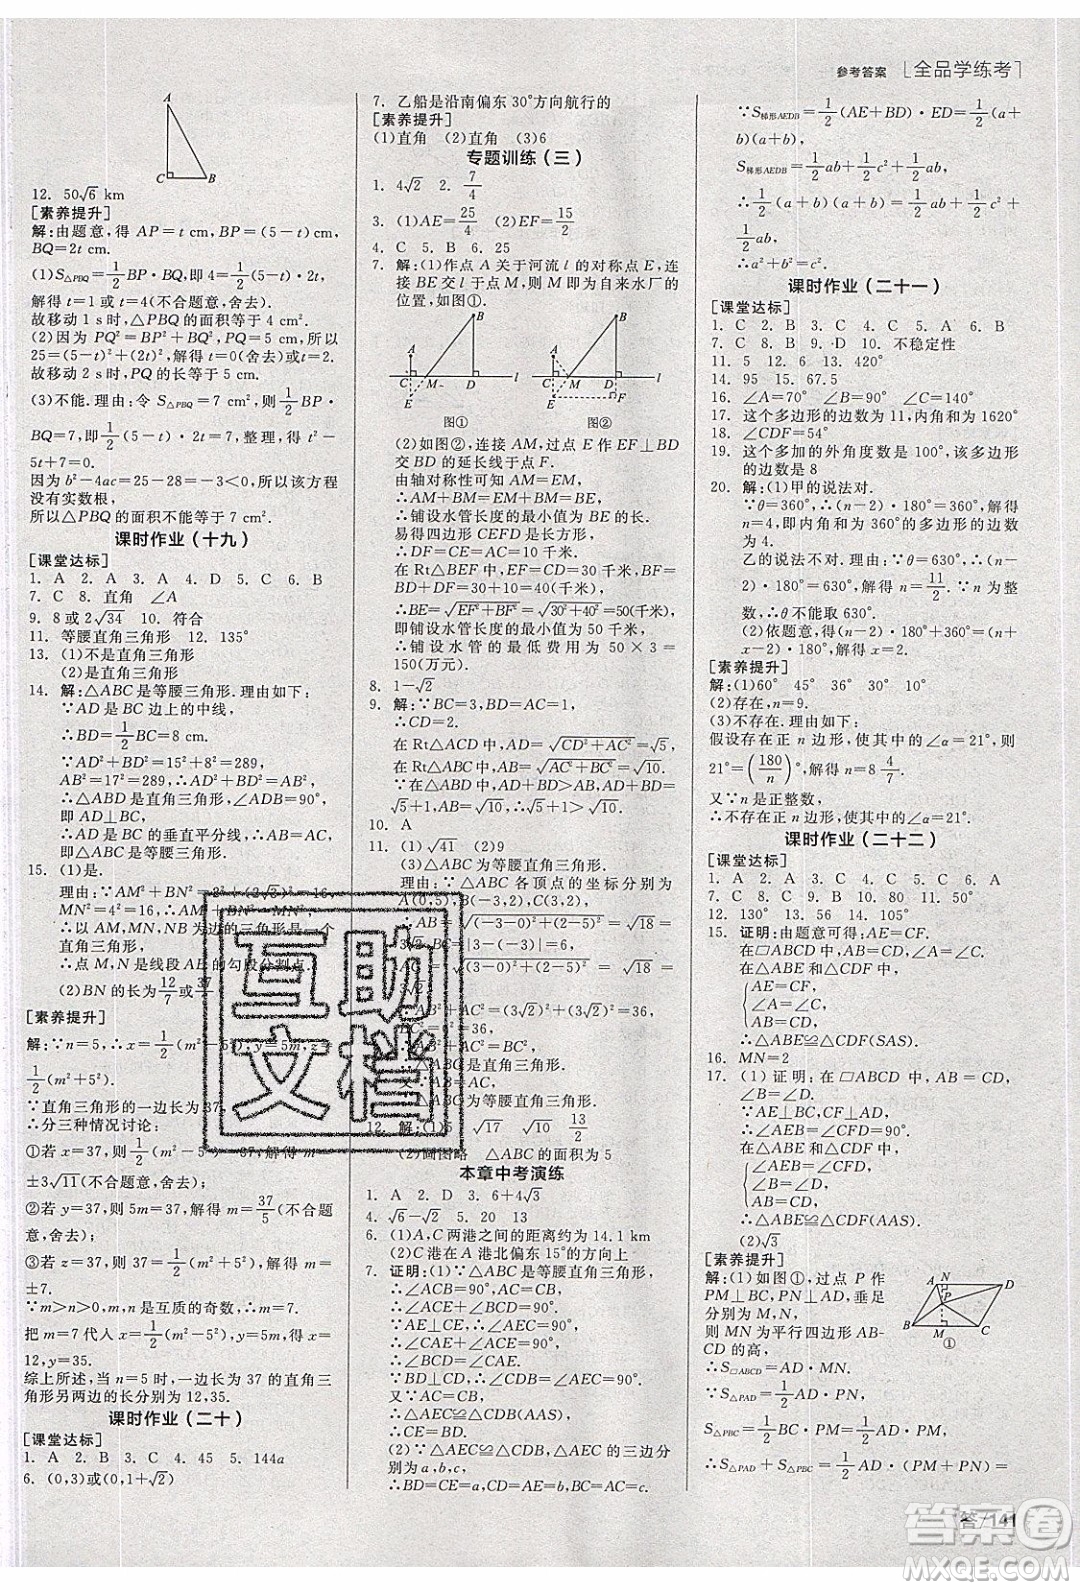 参考答案 [全品学练考]
A
C B
12. 50√6 km
[素养提升]
解:由题意,得 AP=t cm,BP=(5-t)cm,
BQ=2t cm.
(1)S△PBQ=1/2BP·BQ,即4=1/2(5-t)·2t,
解得 t=1或t=4(不合题意,舍去).
故移动 1 s时,△PBQ 的面积等于 4 cm².
(2)因为 PQ²=BP²+BQ²,PQ=5,所以
25=(5-t)²+(2t)²,解得 t=0(舍去)或 t=2.
故移动 2 s时,PQ 的长等于 5 cm.
(3)不能.理由:令 S△PBQ=7,则1/2BP·
BQ=7,即1/2(5-t)·2t=7,整理,得 t²-
5t+7=0.
因为 b²-4ac=25-28=-3<0,所以该方程
没有实数根,
所以△PBQ 的面积不能等于 7 cm².
课时作业(十九)
[课堂达标]
1. A 2. A 3. A 4. D 5. C 6. B
7. C 8. 直角 ∠A
9. 8或2√34 10. 符合
11. 等腰直角三角形 12. 135°
13. (1)不是直角三角形
(2)是直角三角形
14. 解:△ABC是等腰三角形.理由如下:
∵AD 是 BC 边上的中线,
∴BD=1/2BC=8.
∵AD²+BD²=15²+8²=289,
AB²=17²=289,∴AD²+BD²=AB²,
∴△ABD 是直角三角形,∴∠ADB=90°,
即 AD⊥BC,
∴AD 是 BC 的垂直平分线,∴AB=AC,
∴△ABC 是等腰三角形.
15. (1)是.
理由:∵AM²+BN²=
MN²=16,∴AM²+BN²=MN²,
∴以 AM,MN,NB为边的三角形是一个
直角三角形,
∴点 M,N 是线段 AB 的勾股分割点.
(2)BN 的长为12/7或37
[素养提升]
解:∵n=5,∴x=1/2(m²-5²),y=5m,z=
1/2(m²+5²).
∵直角三角形的一边长为 37,
∴分三种情况讨论:
①若 x=37,则1/2(m²-5²)=37,解得 m=±
3√11(不合题意,舍去);
②若 y=37,则 5m=37,解得 m=37/5(不合题
意,舍去);
③若 z=37,则 37=1/2(m²+5²),解得 m=
±7.
∵m>n>0,m,n 是互质的奇数,∴m=7.
把 m=7代入 x=1/2(m²-5²),y=5m,得 x=
12,y=35.
综上所述,当 n=5时,一边长为 37 的直角三
角形另两边的长分别为 12,35.
课时作业(二十)
[课堂达标]
1. A 2. B 3. C 4. 45 5. 144a
6. (0,3)或(0,1+√2)
7. 乙船是沿南偏东 30°方向航行的
[素养提升]
(1)直角 (2)直角 (3)6
专题训练(三)
1. 4√2 2. 7/4
3. (1)AE=25/4 (2)EF=15/2
4. C 5. B 6. D
7. 解:(1)作点 A 关于河流 l 的对称点 E,连
接 BE 交 l 于点 M,则 M 即为自来水厂的
位置,如图①.
B A C M D l E 图①
B A C M D l E F 图②
(2)如图②,连接 AM,过点 E 作 EF⊥BD
交 BD 的延长线于点 F.
由轴对称性可知 AM=EM,
∴AM+BM=EM+BM=BE,
∴铺设水管长度的最小值为 BE 的长.
易得四边形 CDFE 为长方形,
∴DF=CE=AC=10 千米.
在 Rt△BEF 中,EF=CD=30千米,BF=
BD+DF=30+10=40(千米),
∴BE=√(EF²+BF²)=√(30²+40²)=50(千米),
即铺设水管长度的最小值为 50 千米,
∴铺设水管的最低费用为 50×3=
150(万元).
8. 1-√2
9. 解:∵BC=3,AD=BC,AC=1,
∴CD=2.
在 Rt△ACD 中,AD=√(CD²+AC²)=√5,
在 Rt△ABC 中,AB=√(AC²+BC²)=√10.
在△ABD 中,∵AD+BD>AB,AD+BD=
√5+1,AB=√10,∴√5+1>√10.
10. A
11. (1)√41 (2)9
(3)△ABC 是等腰直角三角形.
理由:∵△ABC 各顶点的坐标分别为
A(0,5),B(-3,2),C(3,2),
∴AB=√((-3-0)²+(2-5)²)=√18=
3√2,BC=|3-(-3)|=6,
AC=√((3-0)²+(2-5)²)=√18=3√2.
∵AB²+AC²=(3√2)²+(3√2)²=36,
BC²=6²=36,
∴AB²+AC²=BC².
∴△ABC 是直角三角形.
又∵AB=AC,
∴△ABC 是等腰直角三角形.
12. 解:(1)5 √17 √10 13/2
(2)画图略 △ABC 的面积为 5
本章中考演练
1. A 2. D 3. 6+4√3
4. √6-√2 5. 20 13
6. (1)A,C 两港之间的距离约为 14.1 km
(2)C 港在 A 港北偏东 15°的方向上
7. 证明:(1)∵△ABC 是等腰直角三角形,
∴∠ACB=90°,AC=BC,
∴∠ACE+∠BCE=90°.
∵AE⊥CE,
∴∠ACE+∠CAE=90°,
∴∠BCE=∠CAE.
∵BD⊥CE,∴∠BDC=90°,
∴∠AEC=∠BDC.
又∵AC=BC,
∴△AEC≌△CDB(AAS),
∴CE=BD.
(2)∵△AEC≌△CDB,∴AE=CD.
在 Rt△BDC 中,由勾股定理得
BD²+CD²=BC²,即 a²+b²=c².
∵S梯形AEDB=1/2(AE+BD)·ED=1/2(a+
b)(a+b)=1/2(a+b)²,
S梯形AEDB=1/2ab+1/2c²+1/2ab,
∴1/2(a+b)²=1/2ab+1/2c²+1/2ab,
∴a²+b²=c².
课时作业(二十一)
[课堂达标]
1. C 2. B 3. C 4. C 5. C 6. B
7. C 8. B 9. D 10. 不稳定性
11. 5 12. 6 13. 420°
14. 95 15. 67.5
16. ∠A=70° ∠B=90° ∠C=140°
17. 这个多边形的边数为 11,内角和为 1620°
18. ∠CDF=54°
19. 这个多加的外角度数是 100°,该多边形
的边数是 8
20. 解:(1)甲的说法对.
∵θ=360°,∴(n-2)·180°=360°,解得
n=4,即内角和为 360°的多边形的边数
为 4.
乙的说法不对.理由:∵θ=630°,∴(n-
2)·180°=630°,解得 n=11/2.∵n 为整
数,∴θ不能取 630°.
(2)依题意,得(n-2)·180°+360°=(n+
x-2)·180°,解得 x=2.
[素养提升]
解:(1)60° 45° 36° 30° 10°
(2)存在,n=9.
(3)不存在.理由如下:
假设存在正 n 边形,使其中的∠α=21°,则
21°=(180/n)°,解得 n=8 4/7.
又∵n 是正整数,
∴不存在正 n 边形,使其中的∠α=21°.
课时作业(二十二)
[课堂达标]
1. A 2. C 3. A 4. C 5. C 6. A
7. C 8. C 9. B 10. B 11. 50°
12. 130° 13. 56 14. 105°
15. 证明:由题意可得:AE=CF.
在▱ABCD 中,AB=CD,∠A=∠C.
在△ABE 和△CDF 中,
AE=CF,
∠A=∠C,
AB=CD,
∴△ABE≌△CDF(SAS).
16. MN=2
17. (1) 证明:在▱ABCD 中,AB=CD,
∠ABE=∠CDF.
∵AE⊥BD,CF⊥BD,
∴∠AEB=∠CFD=90°.
在△ABE 和△CDF 中,
∠ABE=∠CDF,
∠AEB=∠CFD,
AB=CD,
∴△ABE≌△CDF(AAS).
(2)√3
[素养提升]
解:(1)如图①,过点 P 作
PM⊥BC,PN⊥AD,垂足
分别为 M,N,
则 MN 为平行四边形 AB-
CD 的高,
A N D P B M C ①
∴S▱ABCD=AD·MN.
∵S△PAD=1/2AD·PN,
S△PBC=1/2BC·PM=1/2AD·PM,
∴S△PAD+S△PBC=1/2AD·(PM+PN)=
答/141
互助
文档
答案圈
MXQE.COM